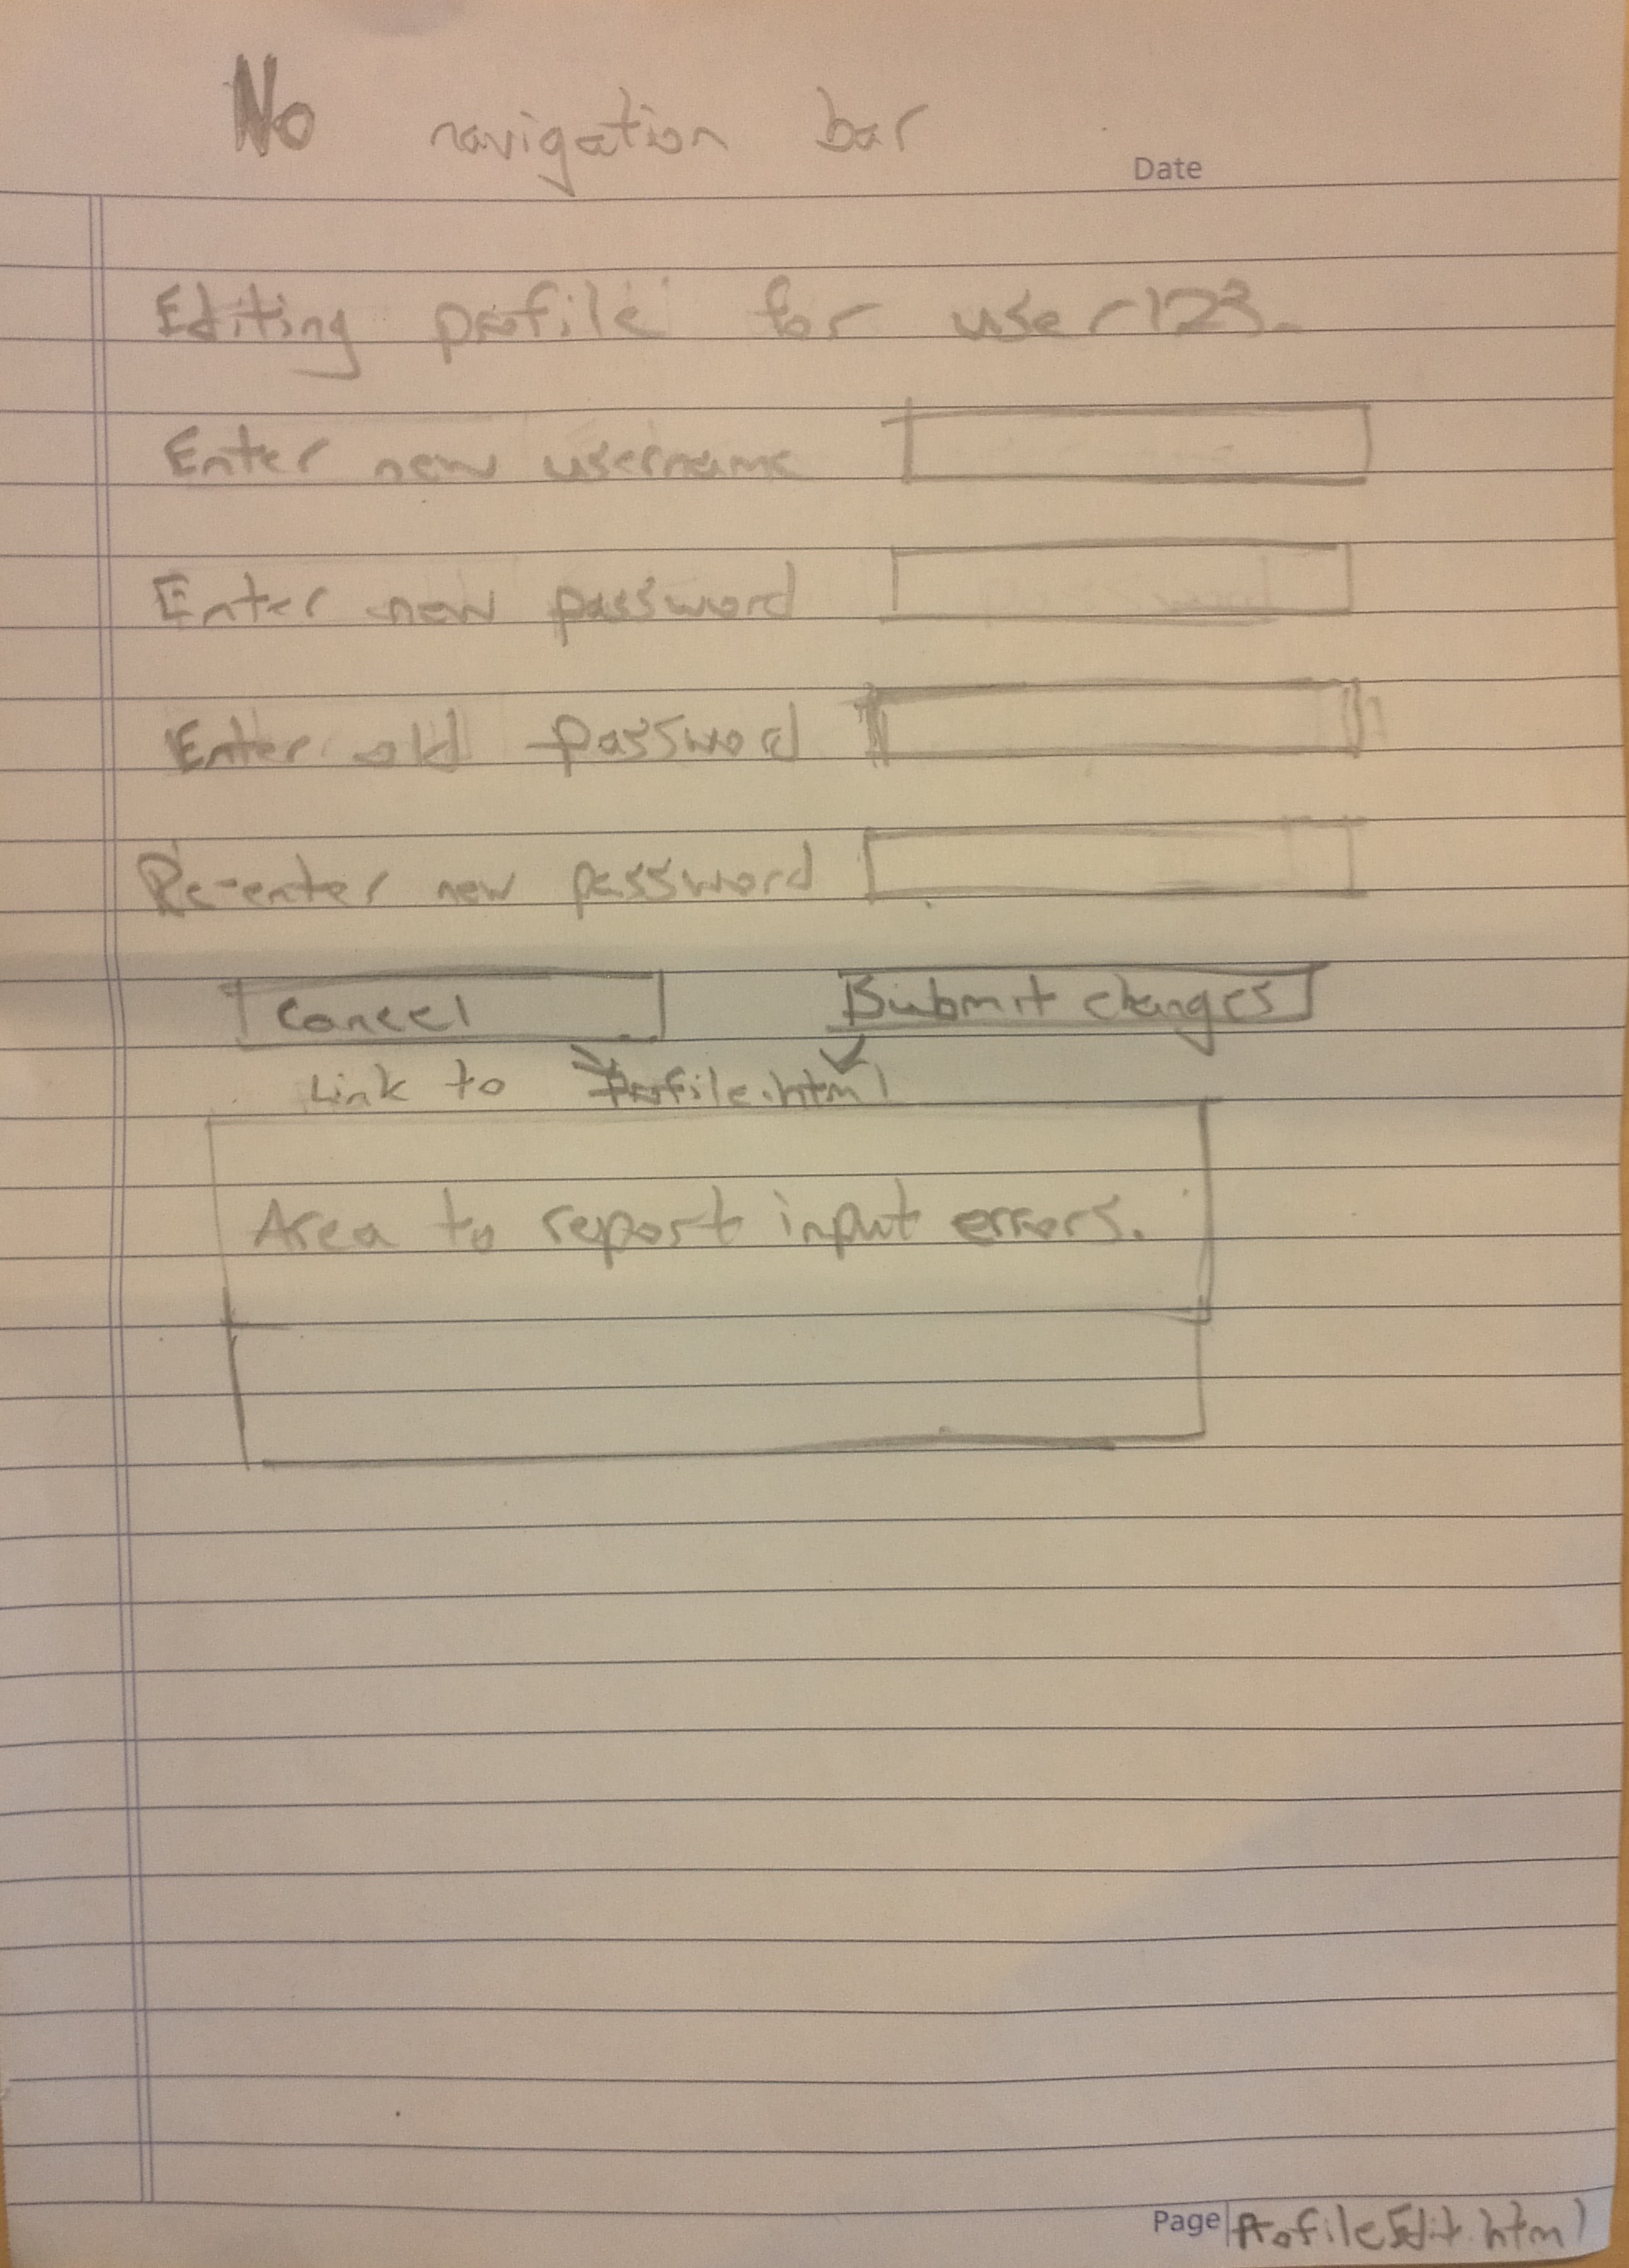 No navigation bar
Date
Editing profile for user123.
Enter new username
Enter new password
Enter old password
Re-enter new password
Cancel Submit changes
Link to Profile.html
Area to report input errors.
Page ProfileEdit.html